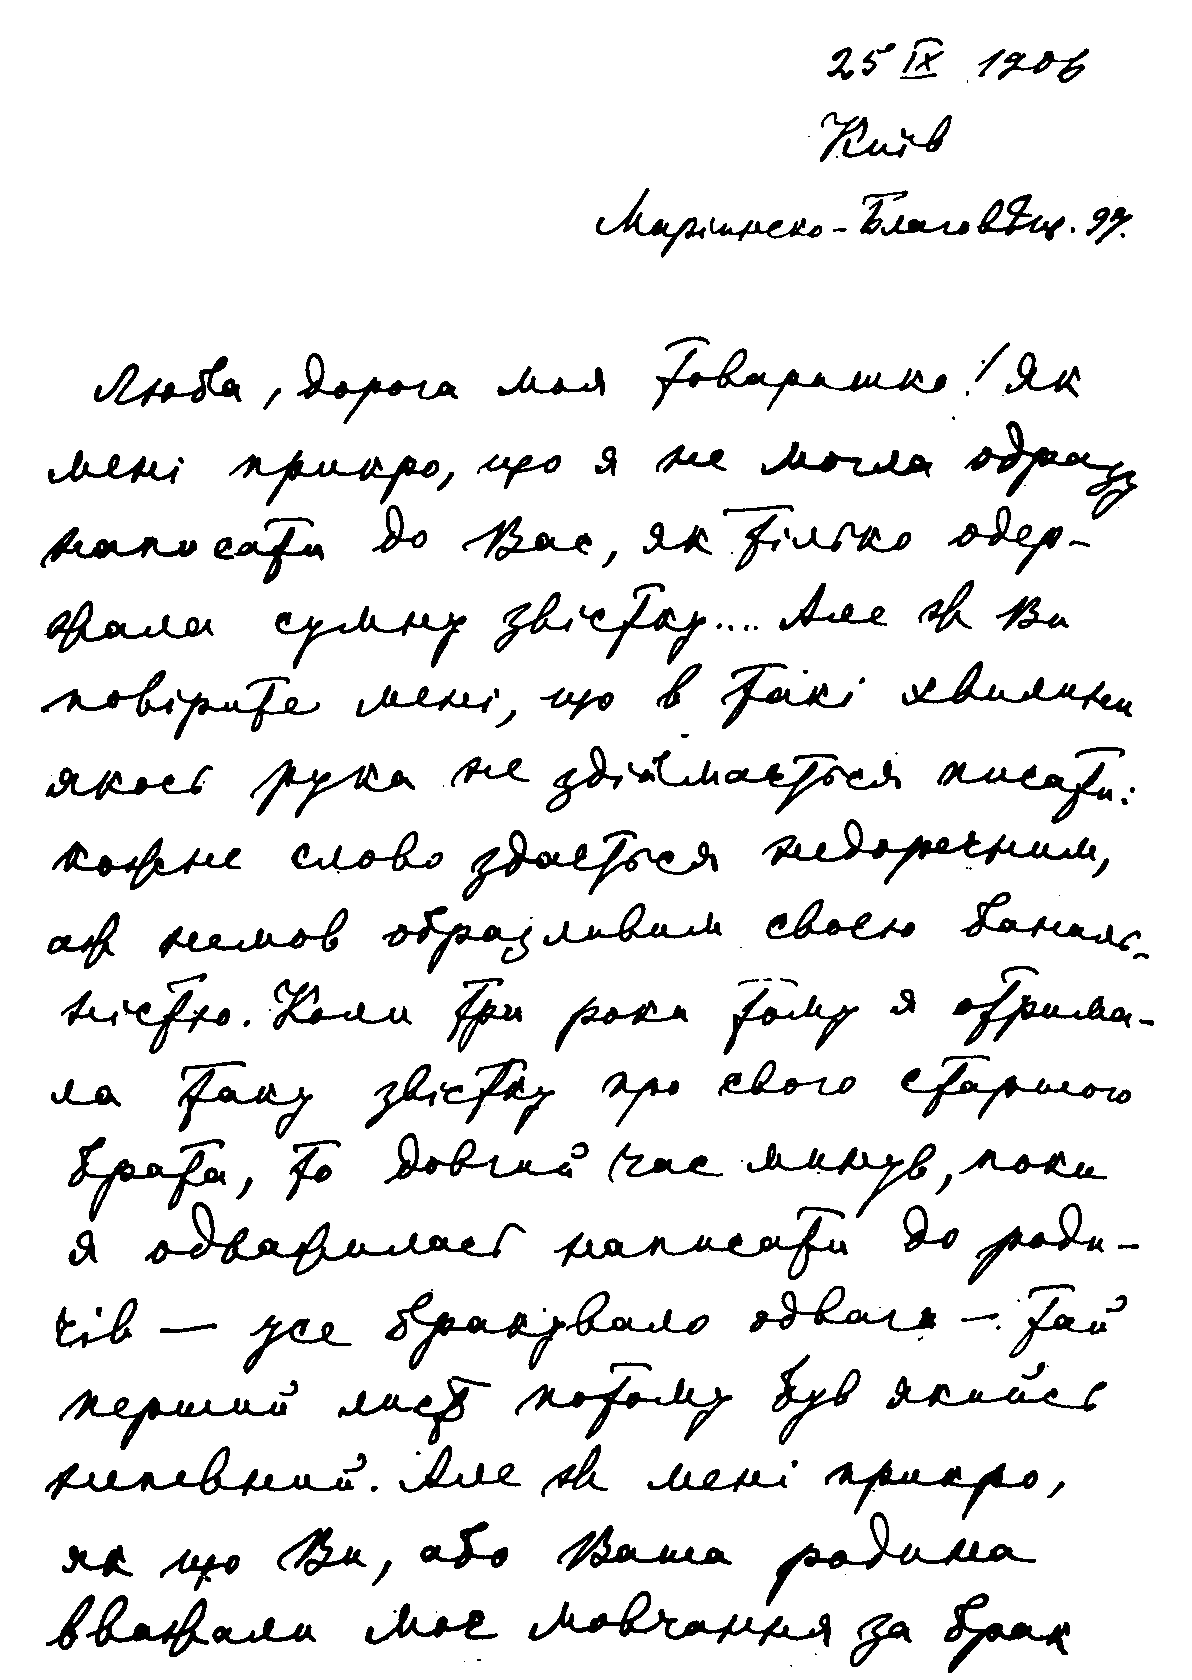 25 IX 1906
Київ
Маріинско-Благовѣщ. 97.
Люба, дорога моя товаришко! Як
мені прикро, що я не могла одразу
написати до Вас, як тілько одер-
жала сумну звістку.... Але ж Ви
повірите мені, що в такі хвилини
якось рука не здіймається писати:
кожне слово здається недоречним,
аж немов образливим своєю баналь-
ністю. Коли три роки тому я отрима-
ла таку звістку про свого старшого
брата, то довгий час минув, поки
я одважилась написати до роди-
чів — усе бракувало одваги —. Тай
перший лист потому був якийсь
непевний. Але ж мені прикро,
як що Ви, або Ваша родина
вважали моє мовчання за брак